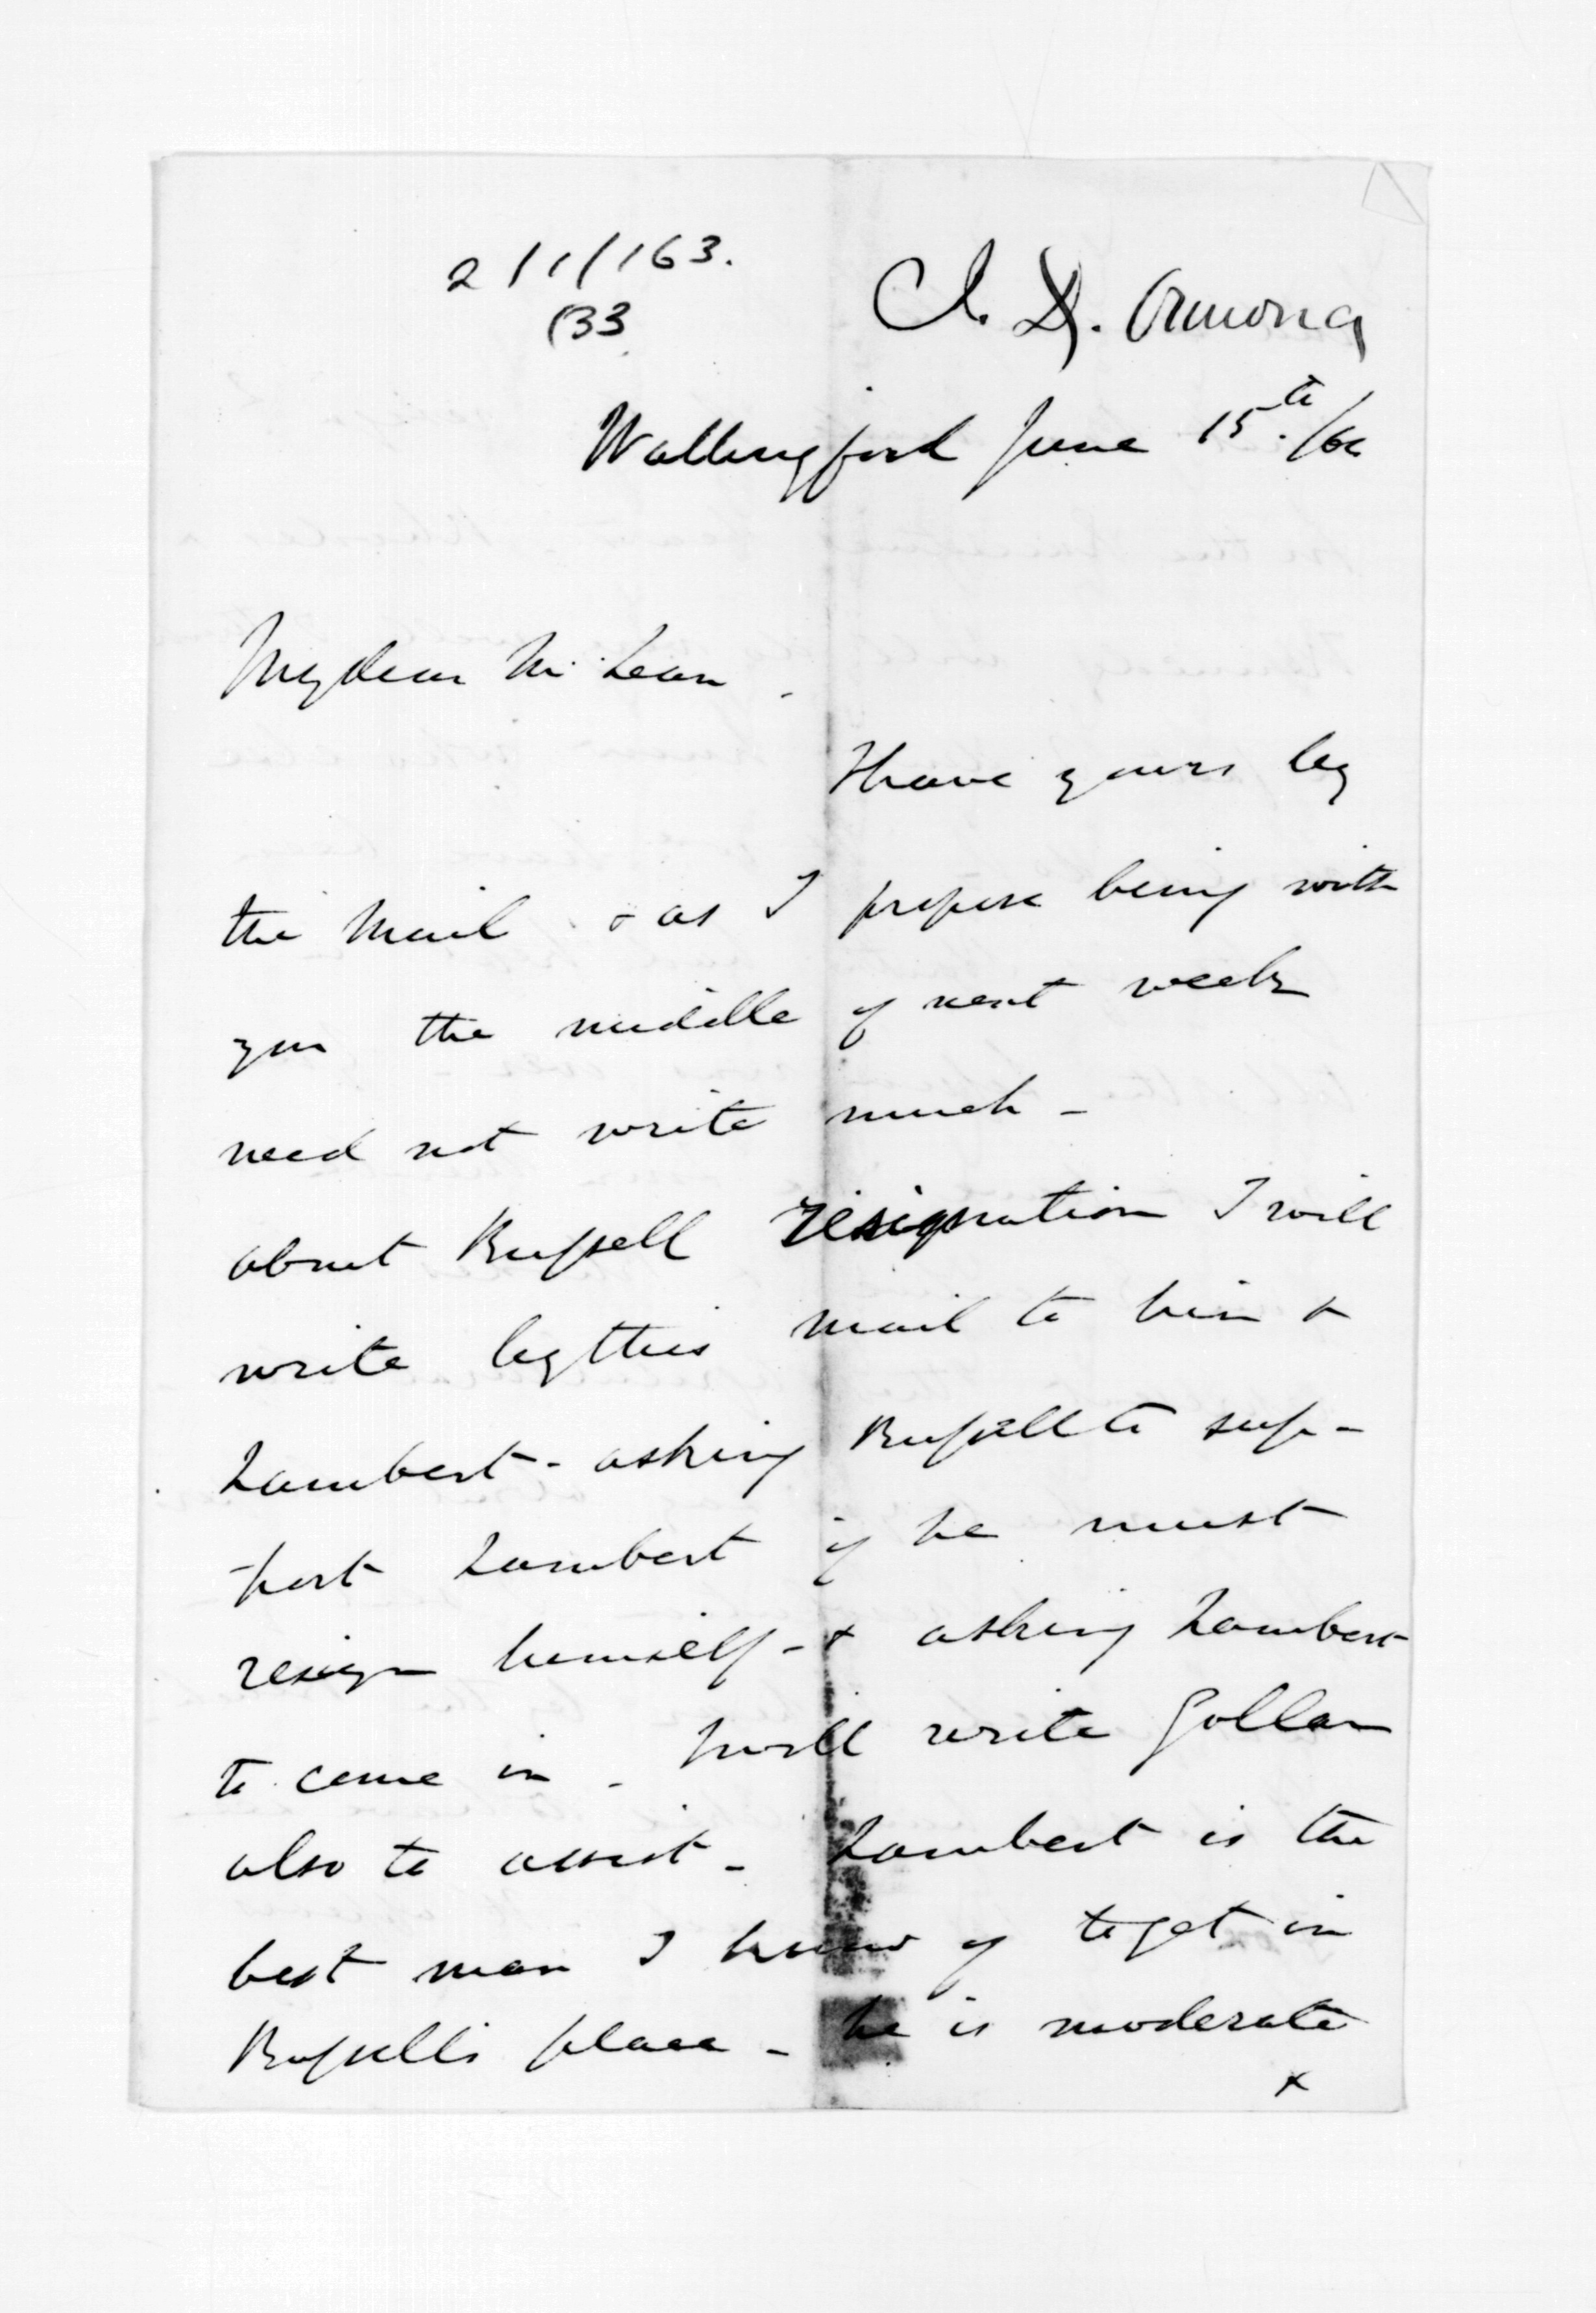 2/1/163.
(33
J. D. Ormond
Wallingford June 15th./66
My dear McLean -
I have yours by
the Mail & as I propose being with
you the middle of next week
need not write much -
about Russell resignation I will
write by this mail to him &
Lambert - asking Russell to sup-
-port Lambert if he must
resign himself - & asking Lambert
to come in - I will write Gollan
also to assist - Lambert is the
best man I know of to get in
Russells place - he is moderate
x